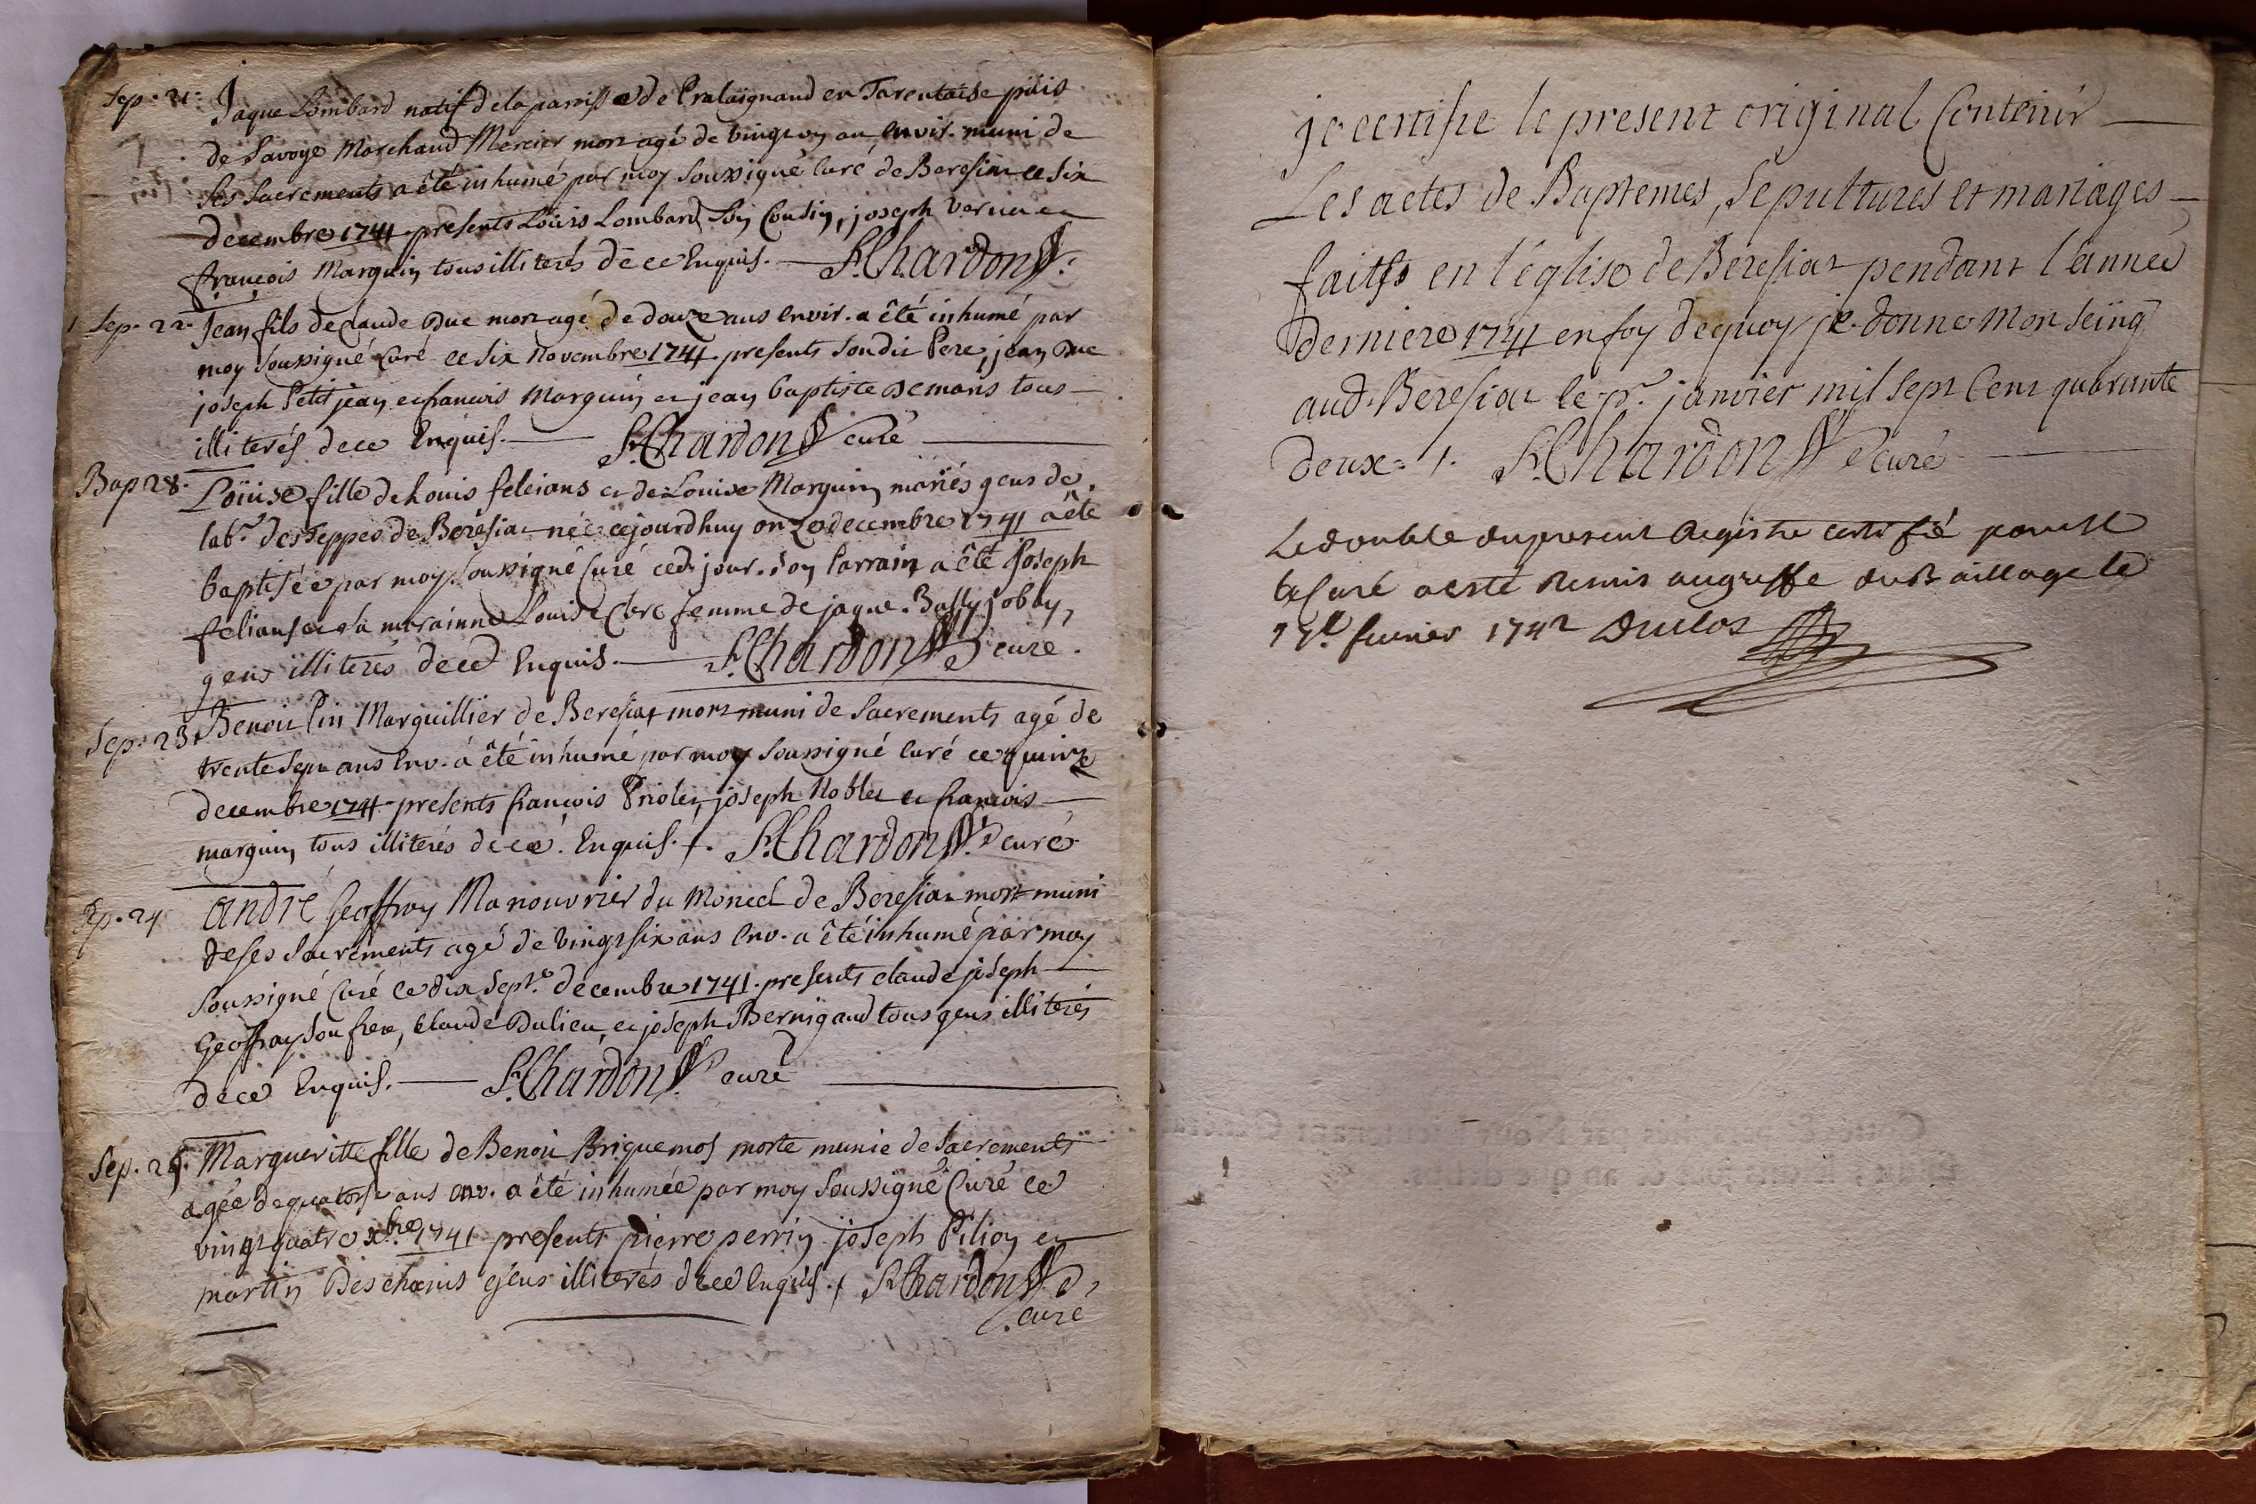 Sep. 21. Jaque Lombard natif de la paroisse de Pralaignand en Tarentaise païs
de Savoye Marchand Mercier mort agé de vingt un an envir. muni de
ses sacrements a êté inhumé par moy soussigné Curé de Beresiat ce six
decembre 1741 presents Loüis Lombard son Cousin, joseph Vernier et
françois Marguin tous illiterés de ce Enquis. F. Chardon
Sep. 22. Jean fils de Claude Duc mort agé de douze ans envir. a êté inhumé par
moy soussigné Curé ce six novembre 1741 presents son dit Pere, jean Duc
joseph Petitjean et francois Marguin et jean baptiste Demans tous
illiterés de ce Enquis. F. Chardon curé
Bap 28. Loüise fille de Louis felcians et de Louise Marguin mariés gens de
lab.r des Teppes de Beresiat née cejourdhuy onze decembre 1741 a êté
baptisée par moy soussigné Curé ced. jour. son Parrain a êté Joseph
felians et sa marainne Louise Clerc femme de jaque Bally
gens illiterés de ce Enquis. F. Chardon curé.
Sep. 23. Benoit Pin Marguillier de Beresiat mort muni de sacrements agé de
trente sept ans env. a êté inhumé par moy soussigné Curé ce quinze
decembre 1741 presents francois Prioler, joseph Noblet et francois
marguin tous illiterés de ce Enquis. F. Chardon curé
Sep. 24 André Geoffray Manouvrier du Moncel de Beresiat mort muni
de ses sacrements agé de vingt six ans env. a êté inhumé par moy
soussigné Curé ce dix sept.e decembre 1741. presents claude joseph
Geoffray son frere, Claude Dulieu et joseph Bernigaud tous gens illiterés
de ce Enquis. F. Chardon curé
Sep. 25. Margueritte fille de Benoit Briquemos morte munie de sacrements
agée de quatorse ans env. a êté inhumée par moy soussigné Curé ce
vingt quatre xbre 1741 presents pierre perrin joseph Pilion et
martin Deschamis gens illiterés de ce Enquis. F. Chardon
curé
je certifie le present original Contenir
Les actes de Baptemes, Sepultures et mariages
faits en l'église de Beresiat pendant l'année
derniere 1741 en foy de quoy je donne mon seing
aud. Beresiat le p.r janvier mil sept Cent quarante
deux. F. Chardon curé
Le double du present Registre certifié par
le Curé a esté Remis au greffe du Baillage le
17e fevrier 1742 Duclos